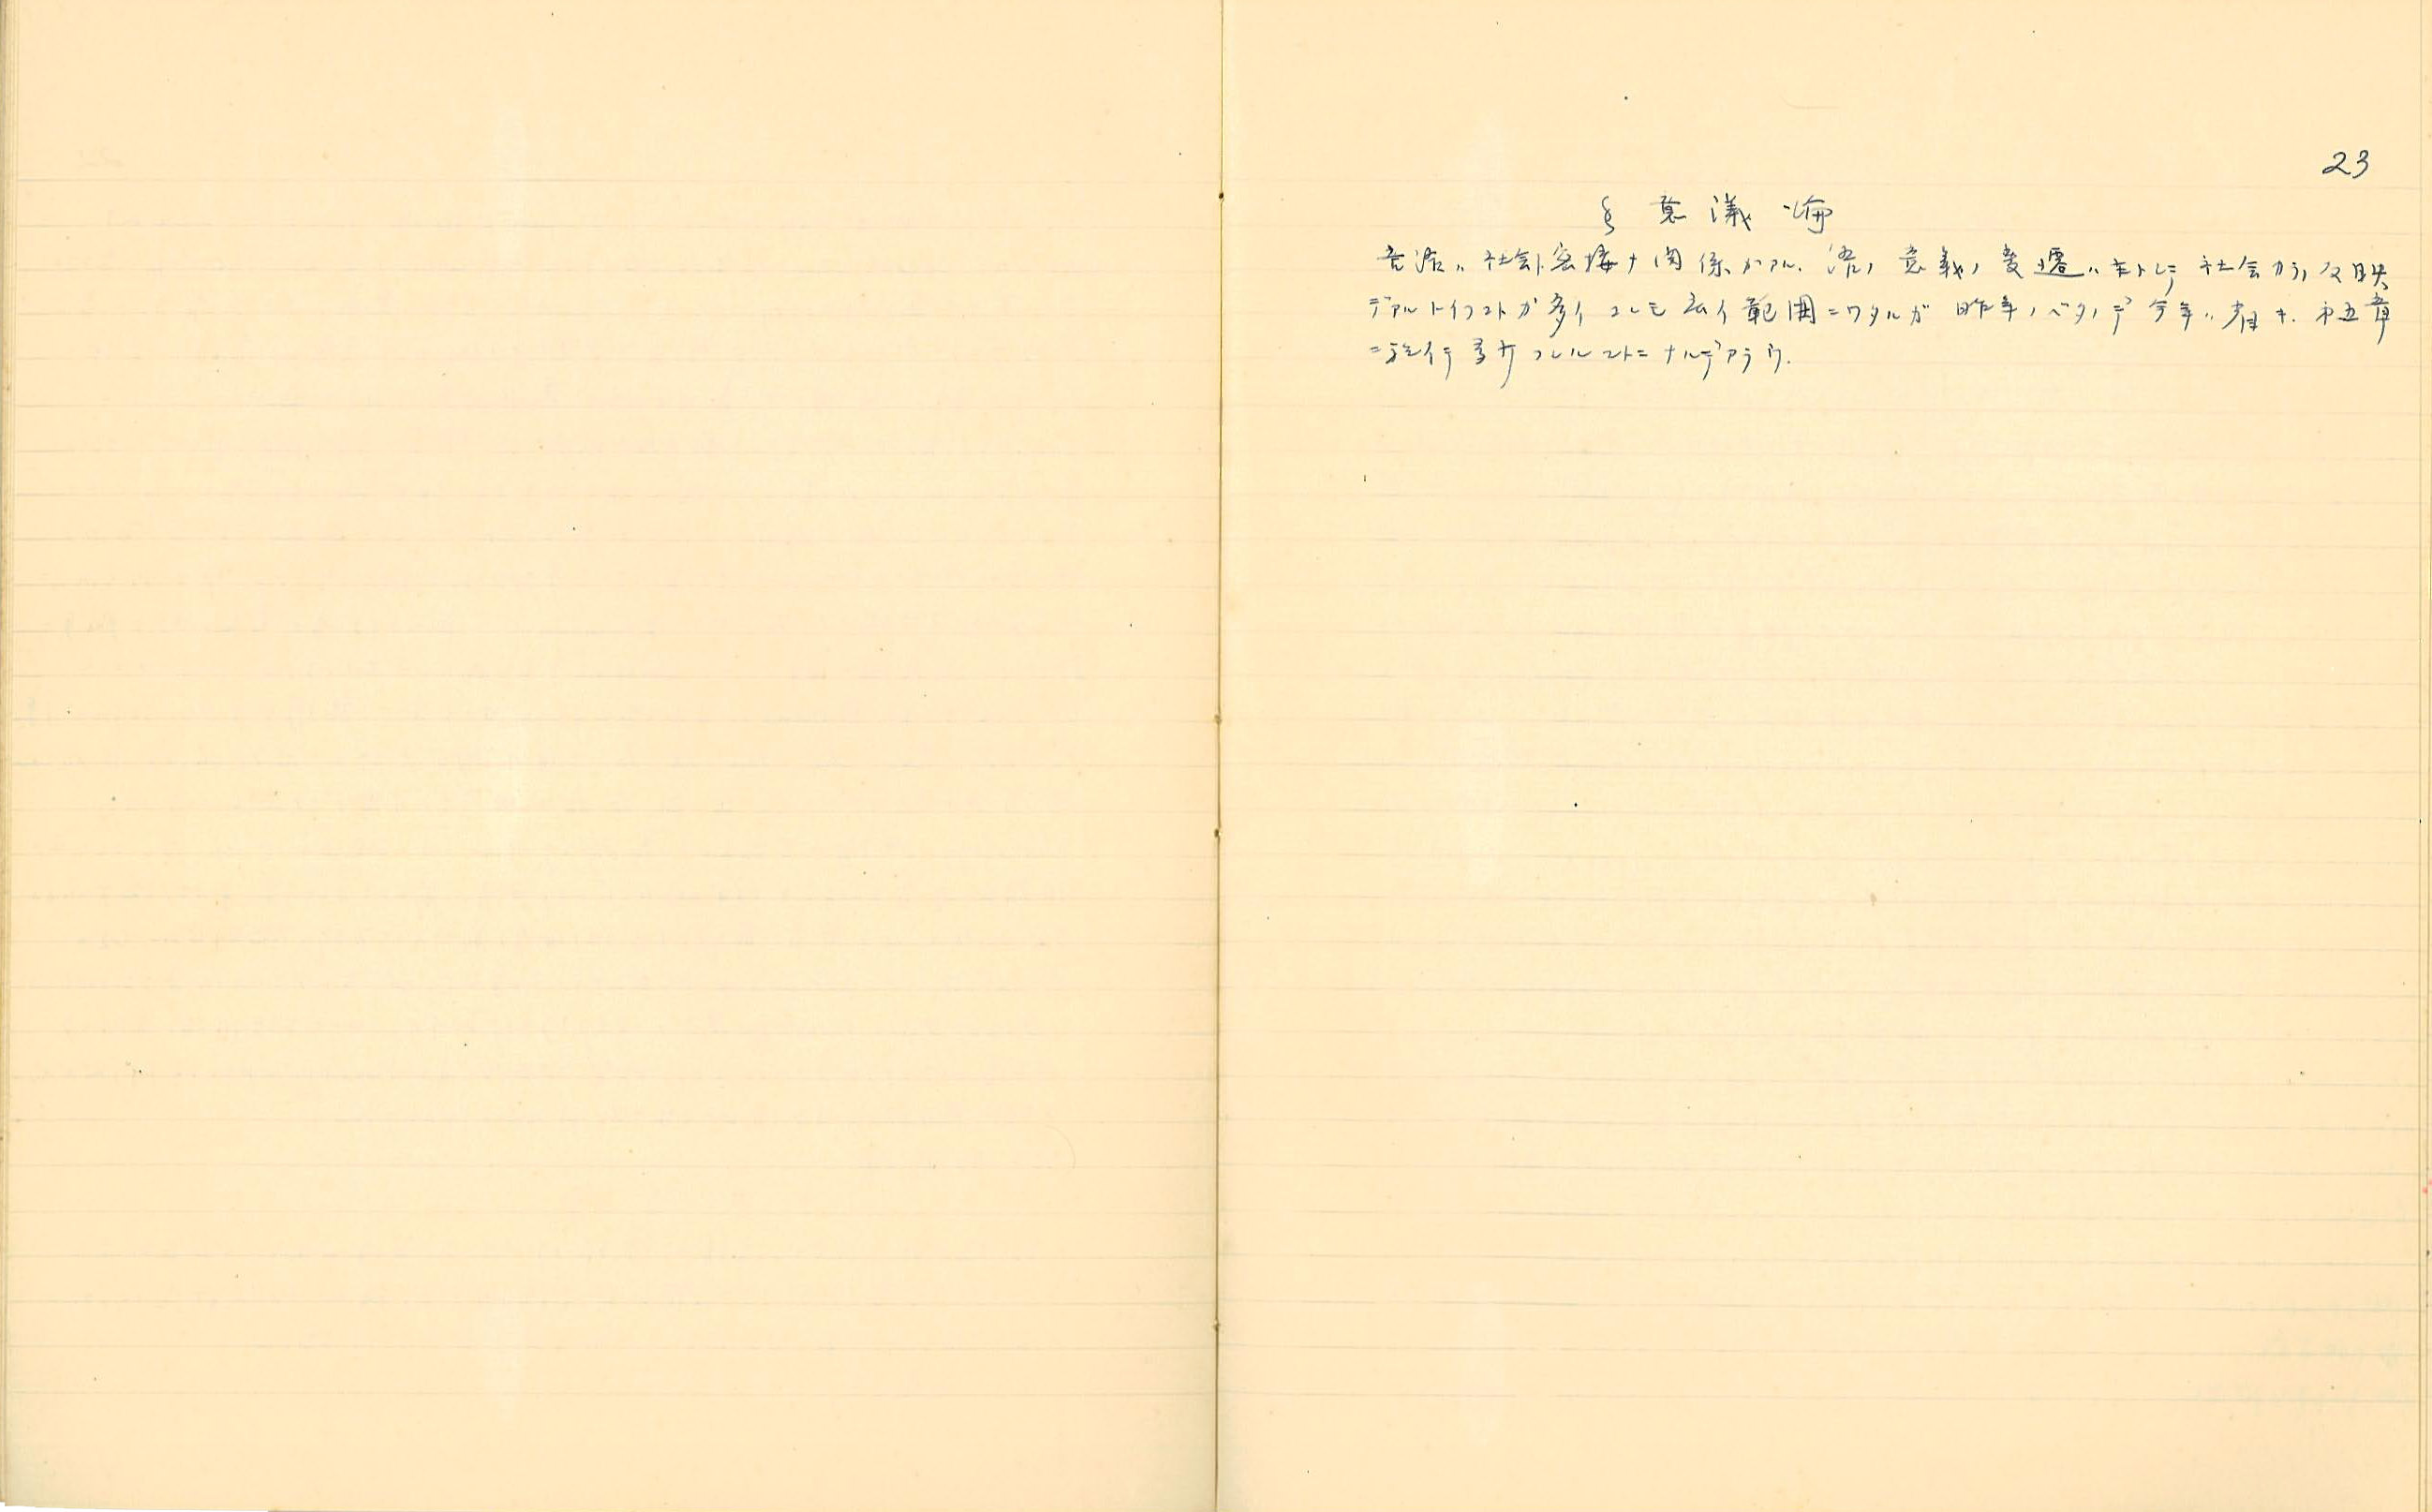 23
§ 意議論
言語ハ社会ト密接ナ関係ガアル. 語ノ意義ノ変遷ハ主トシテ社会カラノ反映
デアルトイフコトガ多イ コレモ広イ範囲ニワタルガ 昨年ノベタノデ今年ハ省キ. 第五章
ニ於イテ多少フレルコトニナルデアラウ.